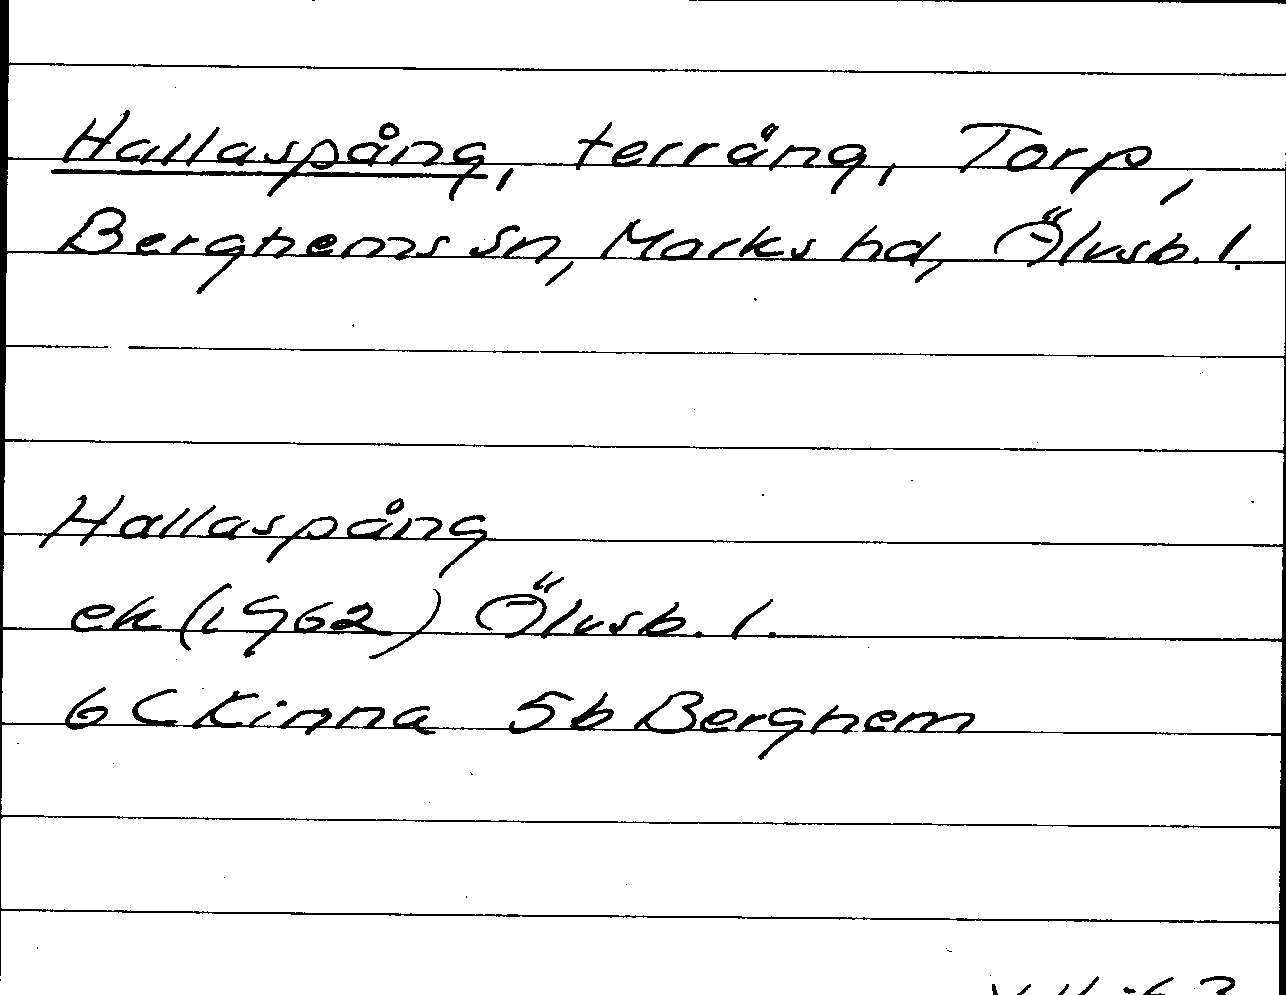 Hallaspång, terräng, Torp,
Berghems sn, Marks hd, Älvsb. l.
Hallaspång
ek (1962) Älvsb. l.
6 C Kinna 5b Berghem